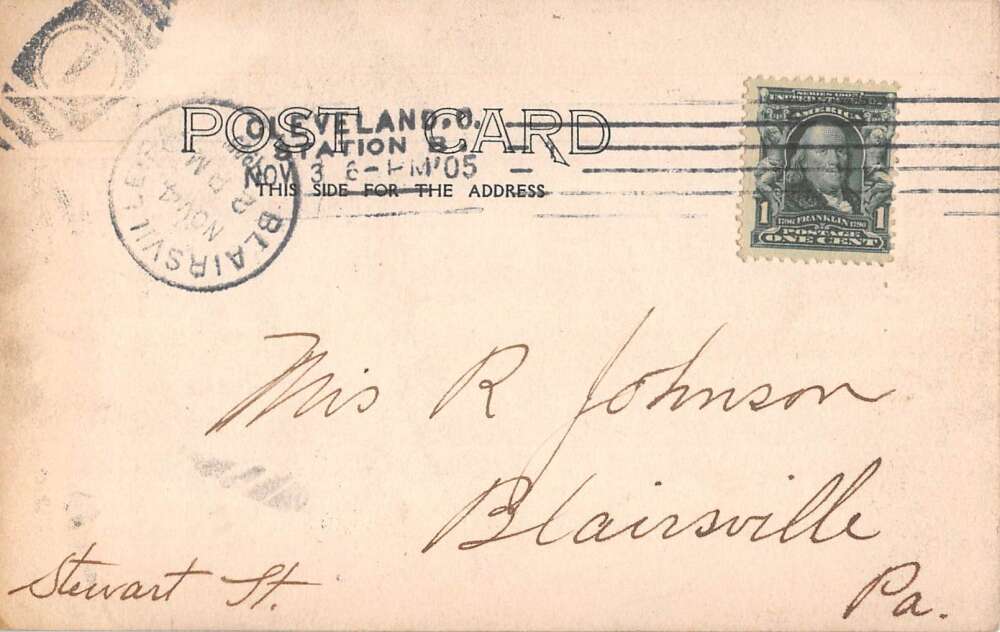 POST CARD
CLEVELAND. O.
STATION B.
NOV 3 6-PM '05
THIS SIDE FOR THE ADDRESS
BLAIRSVILLE
NOV 4
1
SERIES 1902
UNITED STATES OF
AMERICA
1 1706 FRANKLIN 1790 1
POSTAGE
ONE CENT
Mis R Johnson
Blairsville
Stewart St.
Pa.